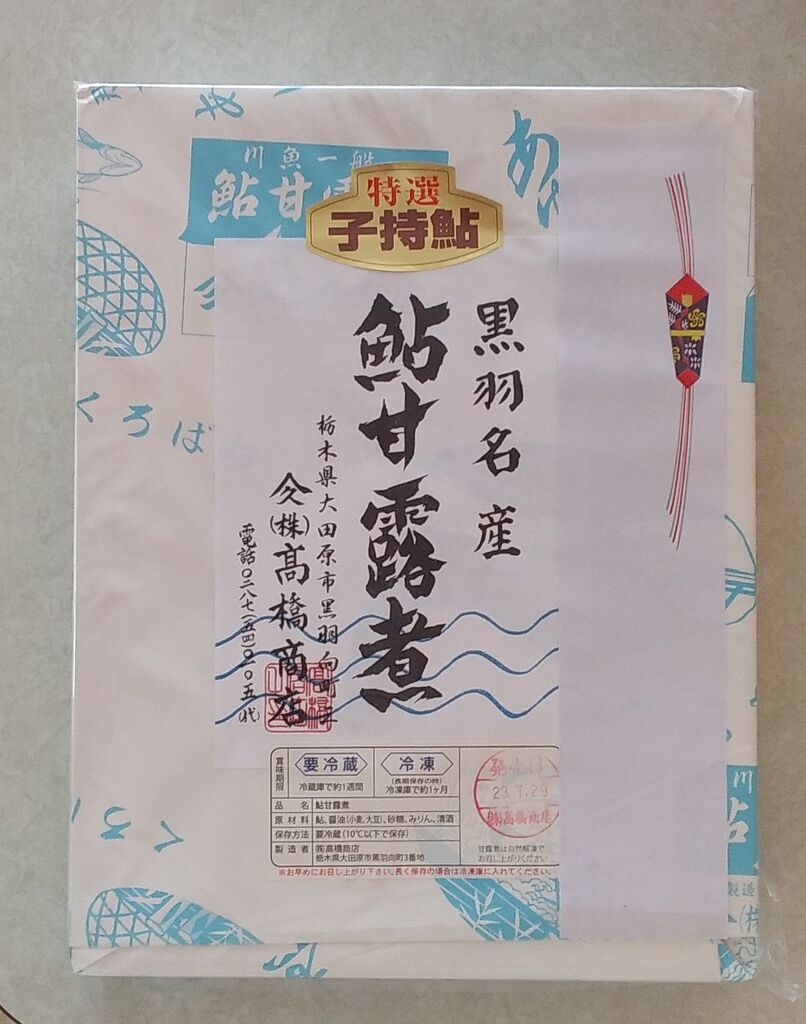 川魚一般
鮎甘露
あ
くろば
特選
子持鮎
黒羽名産
鮎甘露煮
栃木県大田原市黒羽向町三
(株)髙橋商店
電話〇二八七(五四)〇二〇五(代)
賞味期限
要冷蔵
冷蔵庫で約1週間
冷凍
(長期保存の時)
冷凍庫で約1ヶ月
品名 鮎甘露煮
原材料 鮎、醤油(小麦、大豆)、砂糖、みりん、清酒
保存方法 要冷蔵(10℃以下で保存)
製造者 ㈱高橋商店
栃木県大田原市黒羽向町3番地
発送日
23.7.29
㈱高橋商店
甘露煮は自然解凍で
お召し上がりください
※お早めにお召し上がり下さい。長く保存の場合は冷凍庫に入れてください。
川
鮎
製造
(株